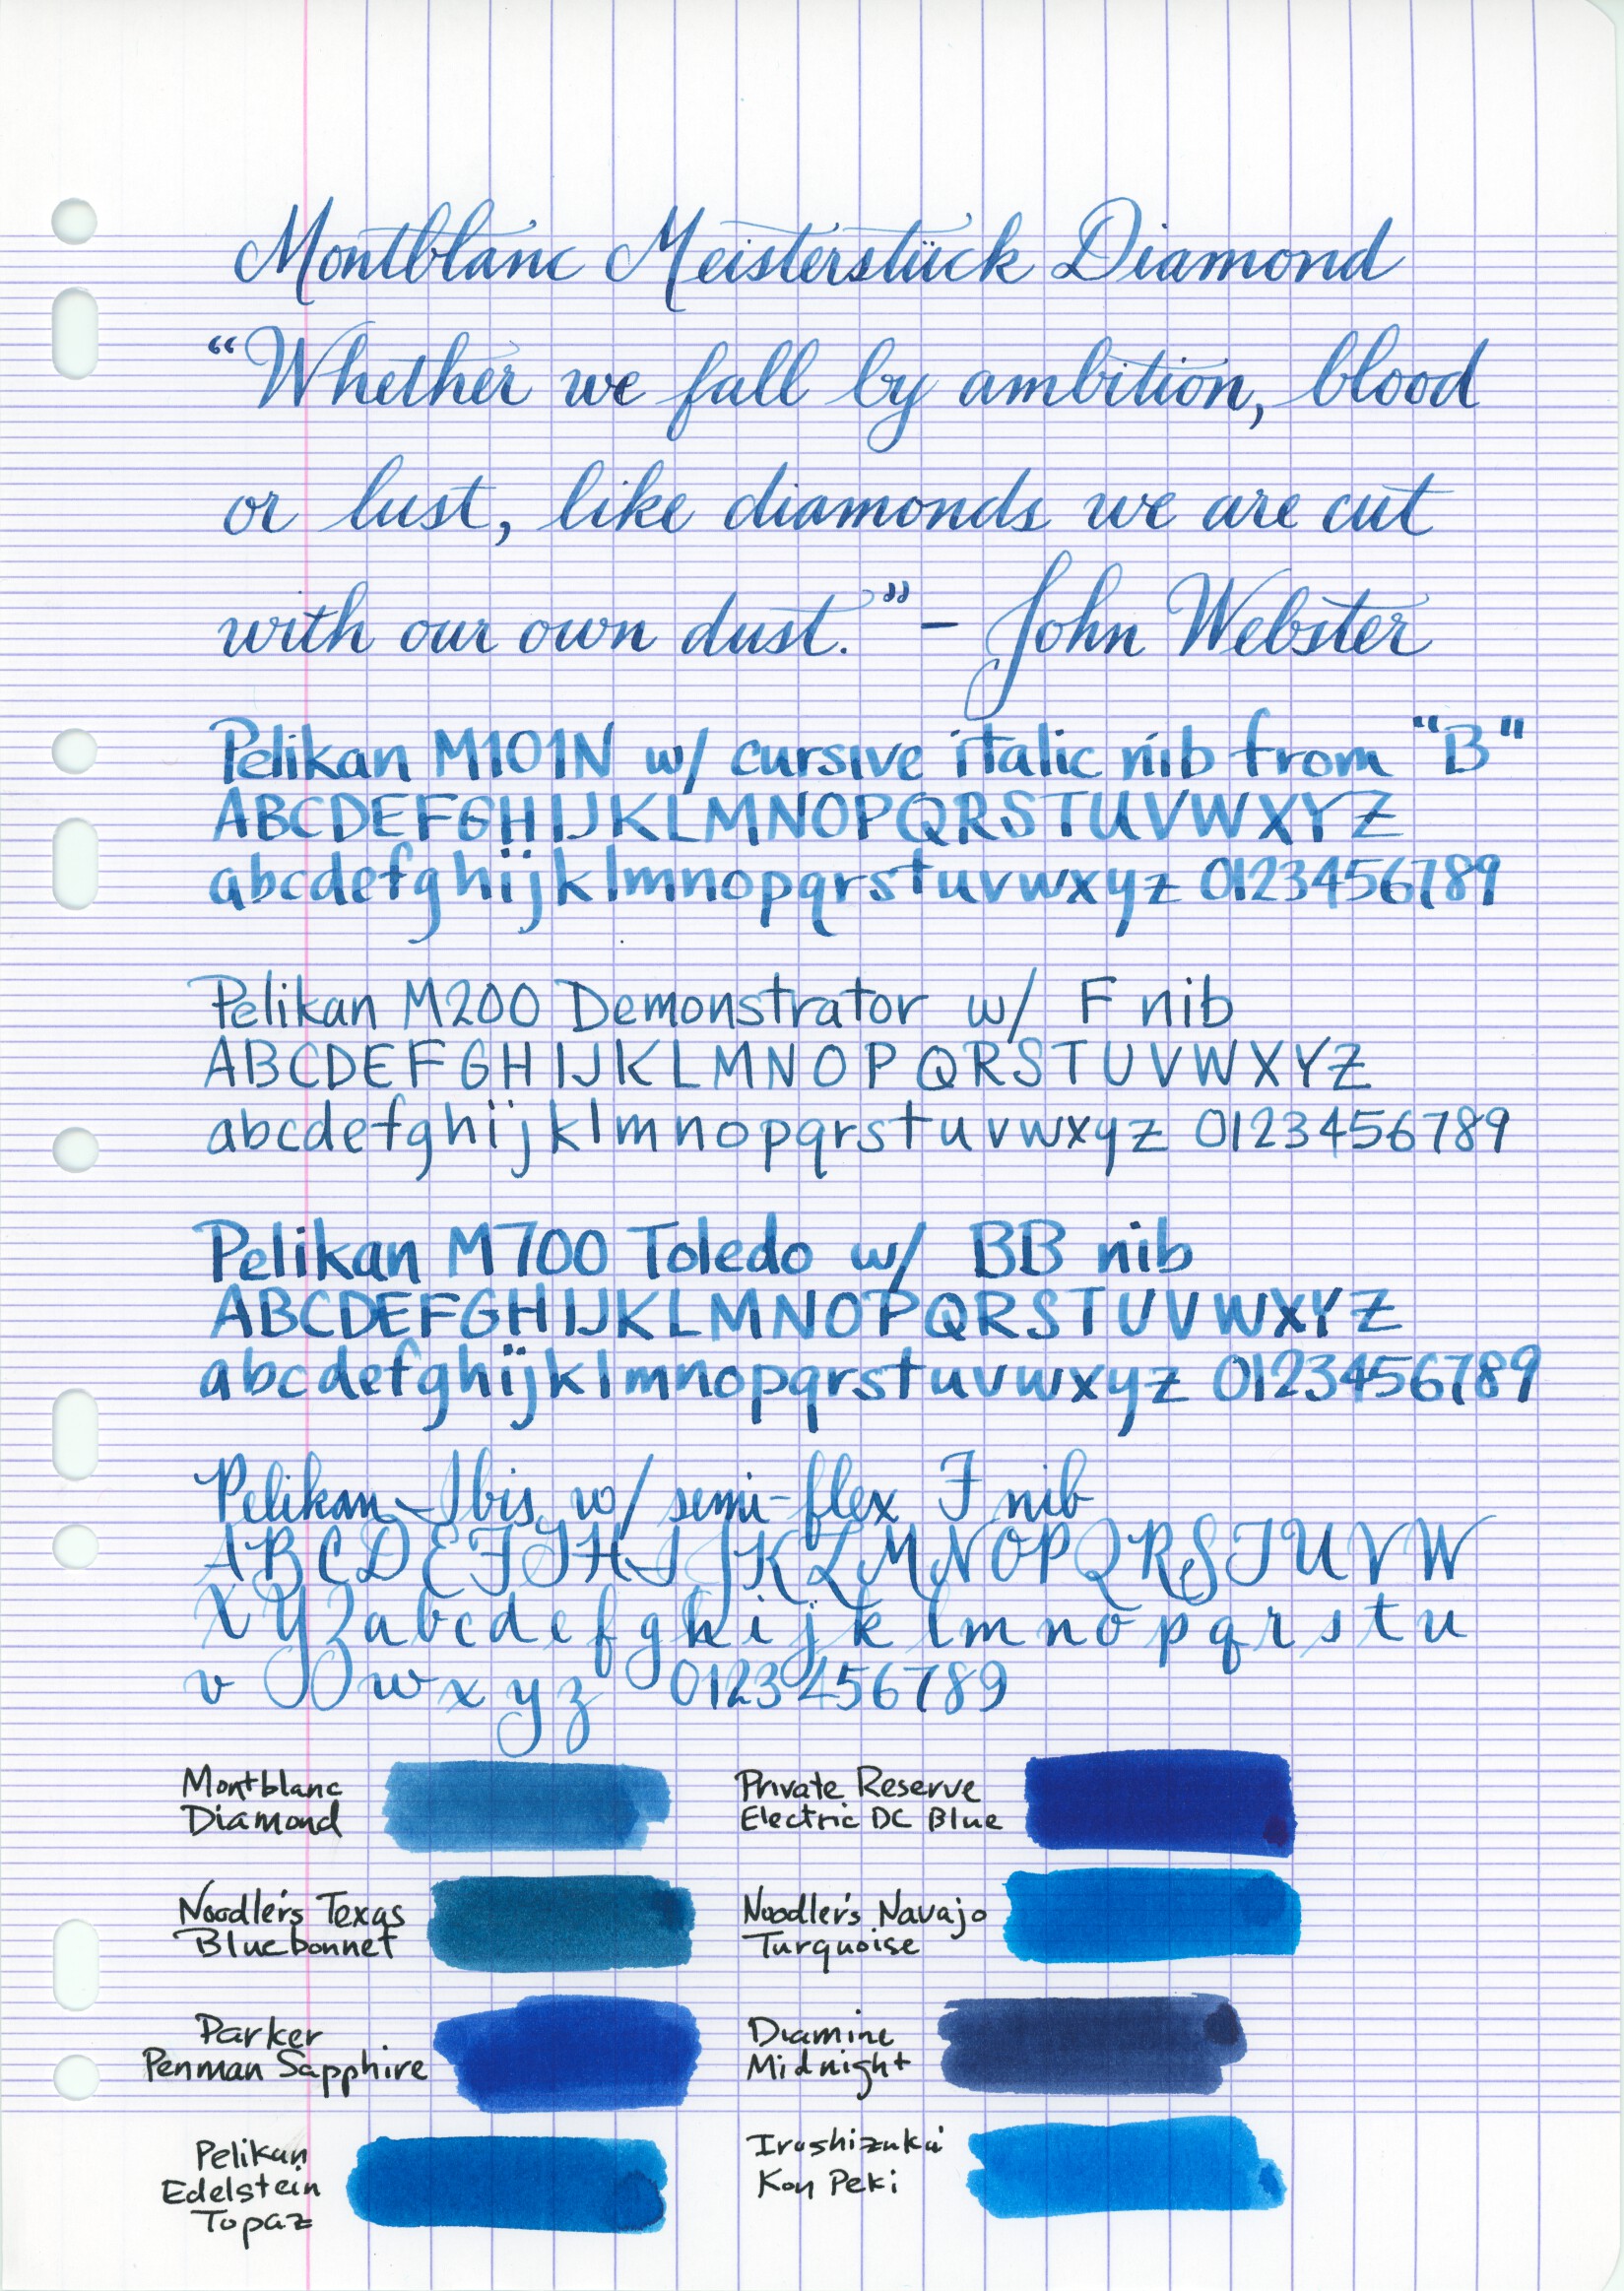 Montblanc Meisterstück Diamond
“Whether we fall by ambition, blood
or lust, like diamonds we are cut
with our own dust.” – John Webster
Pelikan M101N w/ cursive italic nib from "B"
ABCDEFGHIJKLMNOPQRSTUVWXYZ
abcdefghijklmnopqrstuvwxyz 0123456789
Pelikan M200 Demonstrator w/ F nib
ABCDEFGHIJKLMNOPQRSTUVWXYZ
abcdefghijklmnopqrstuvwxyz 0123456789
Pelikan M700 Toledo w/ BB nib
ABCDEFGHIJKLMNOPQRSTUVWXYZ
abcdefghijklmnopqrstuvwxyz 0123456789
Pelikan Ibis w/ semi-flex F nib
A B C D E F G H I J K L M N O P Q R S T U V W
X Y Z a b c d e f g h i j k l m n o p q r s t u
v w x y z 0123456789
Montblanc
Diamond
Private Reserve
Electric DC Blue
Noodler's Texas
Bluebonnet
Noodler's Navajo
Turquoise
Parker
Penman Sapphire
Diamine
Midnight
Pelikan
Edelstein
Topaz
Iroshizuku
Kon Peki